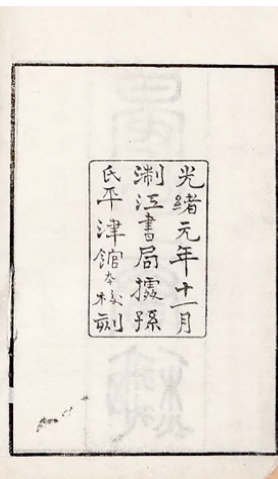 光緒元年十一月
淛江書局據孫
氏平津館本校刻